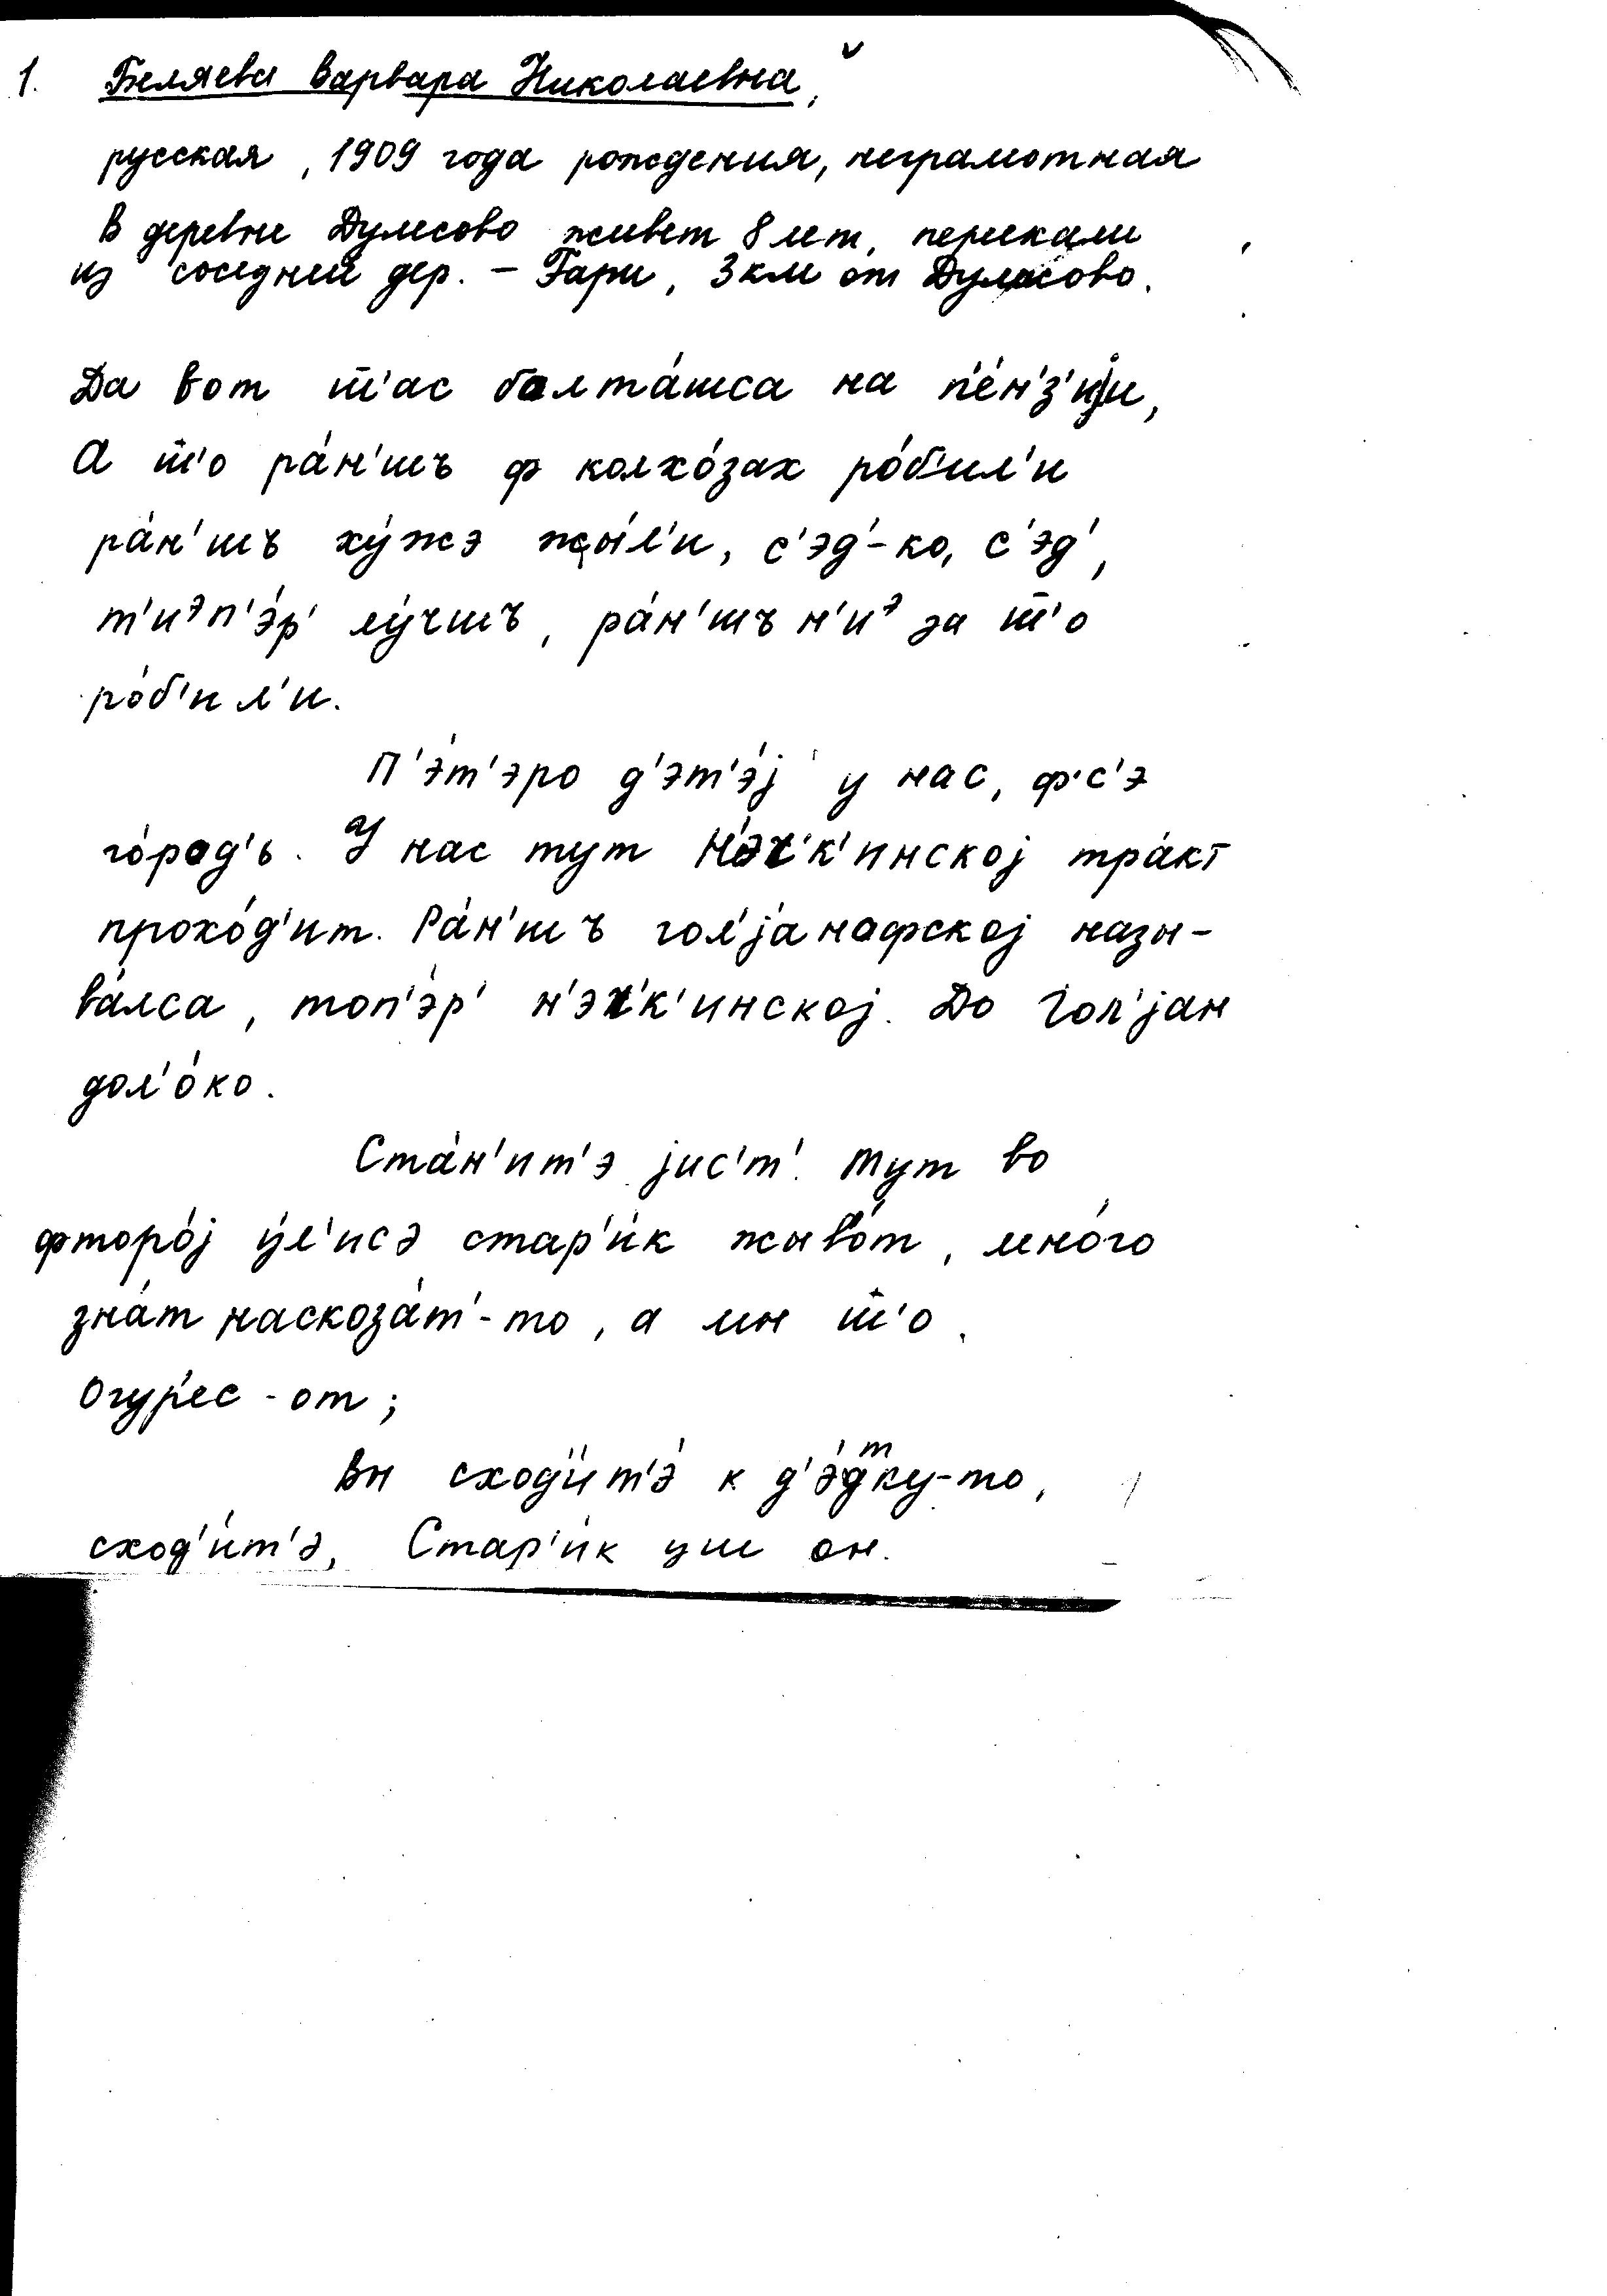 1. Беляева Варвара Николаевна,
русская, 1909 года рождения, неграмотная
В деревне Дулесово живет 8 лет, переехали
из соседней дер. – Гари, 3 км от Дулесово.
Да вот т̄'ас болта́шса на п'е́н'з'иjи,
А т̄'о ра́н'шъ ф колхо́зах ро́б'ил'и
ра́н'шъ ху́жэ жы́л'и, с'эд'-ко, с'эд',
т'иэп'э́р' лу́чшъ, ра́н'шъ н'иэ за т̄'о
ро́б'ил'и.
П'э́т'эро д'эт'э́j у нас, ф'с'э
го́род'ь. У нас тут Н'э́ч'к'инскоj тра́кт
прохо́д'ит. Ра́н'шъ гол'jа́нафскоj назы-
ва́лса, топ'э́р' н'эч'к'инскоj. До Гол'jан
дол'о́ко.
Ста́н'ит'э jис'т'. Тут во
фторо́j у́л'исэ стар'и́к жыво́т, мно́го
зна́т наскоза́т'-то, а мы т̄'о.
Огур'ес-от;
Вы сход'и́т'э к д'э́дтку-то,
сход'и́т'э, Стар'и́к уш он.